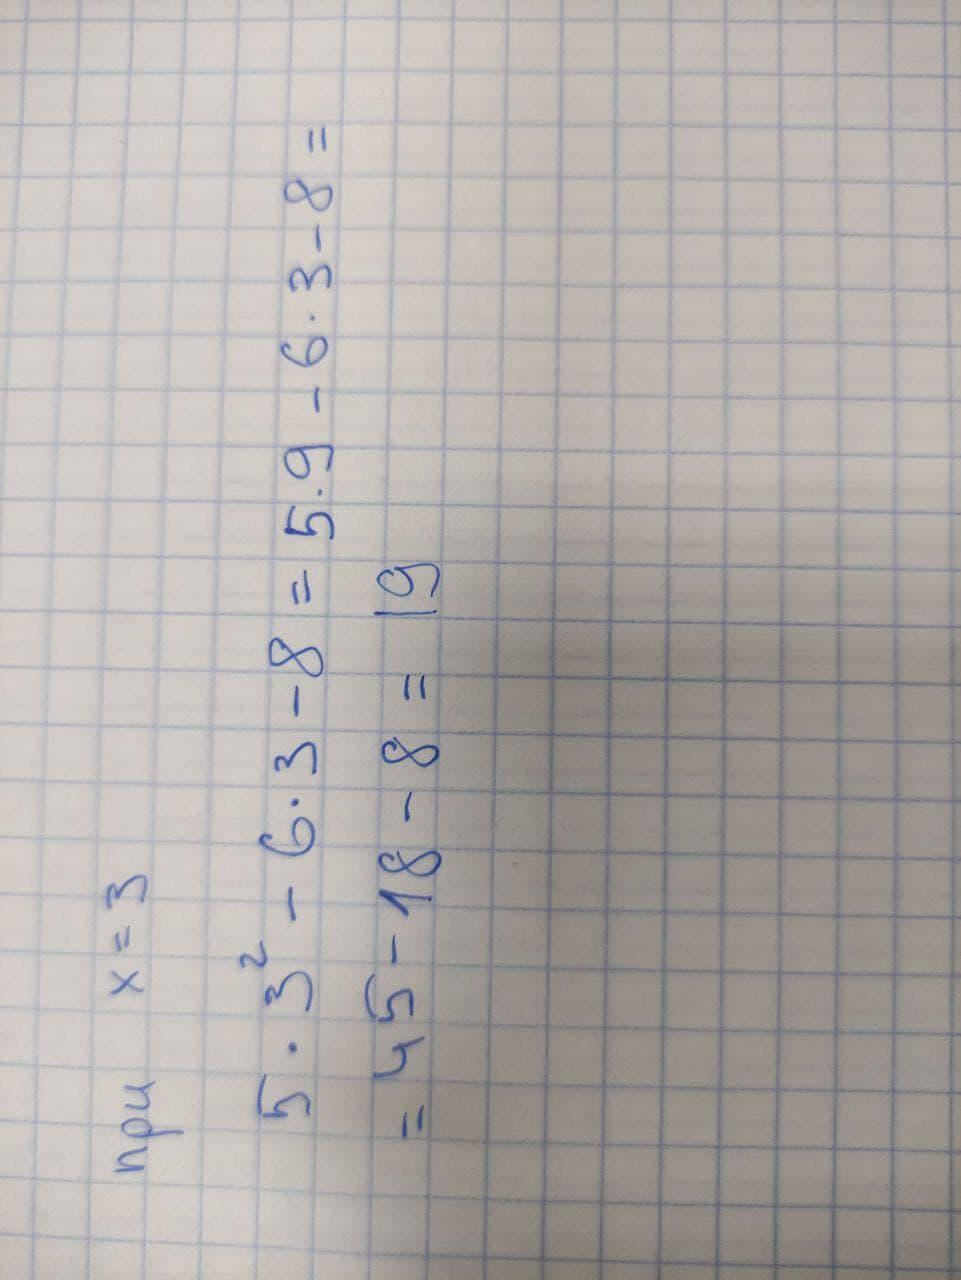 при x = 3
5 · 3² - 6 · 3 - 8 = 5 · 9 - 6 · 3 - 8 =
= 45 - 18 - 8 = 19